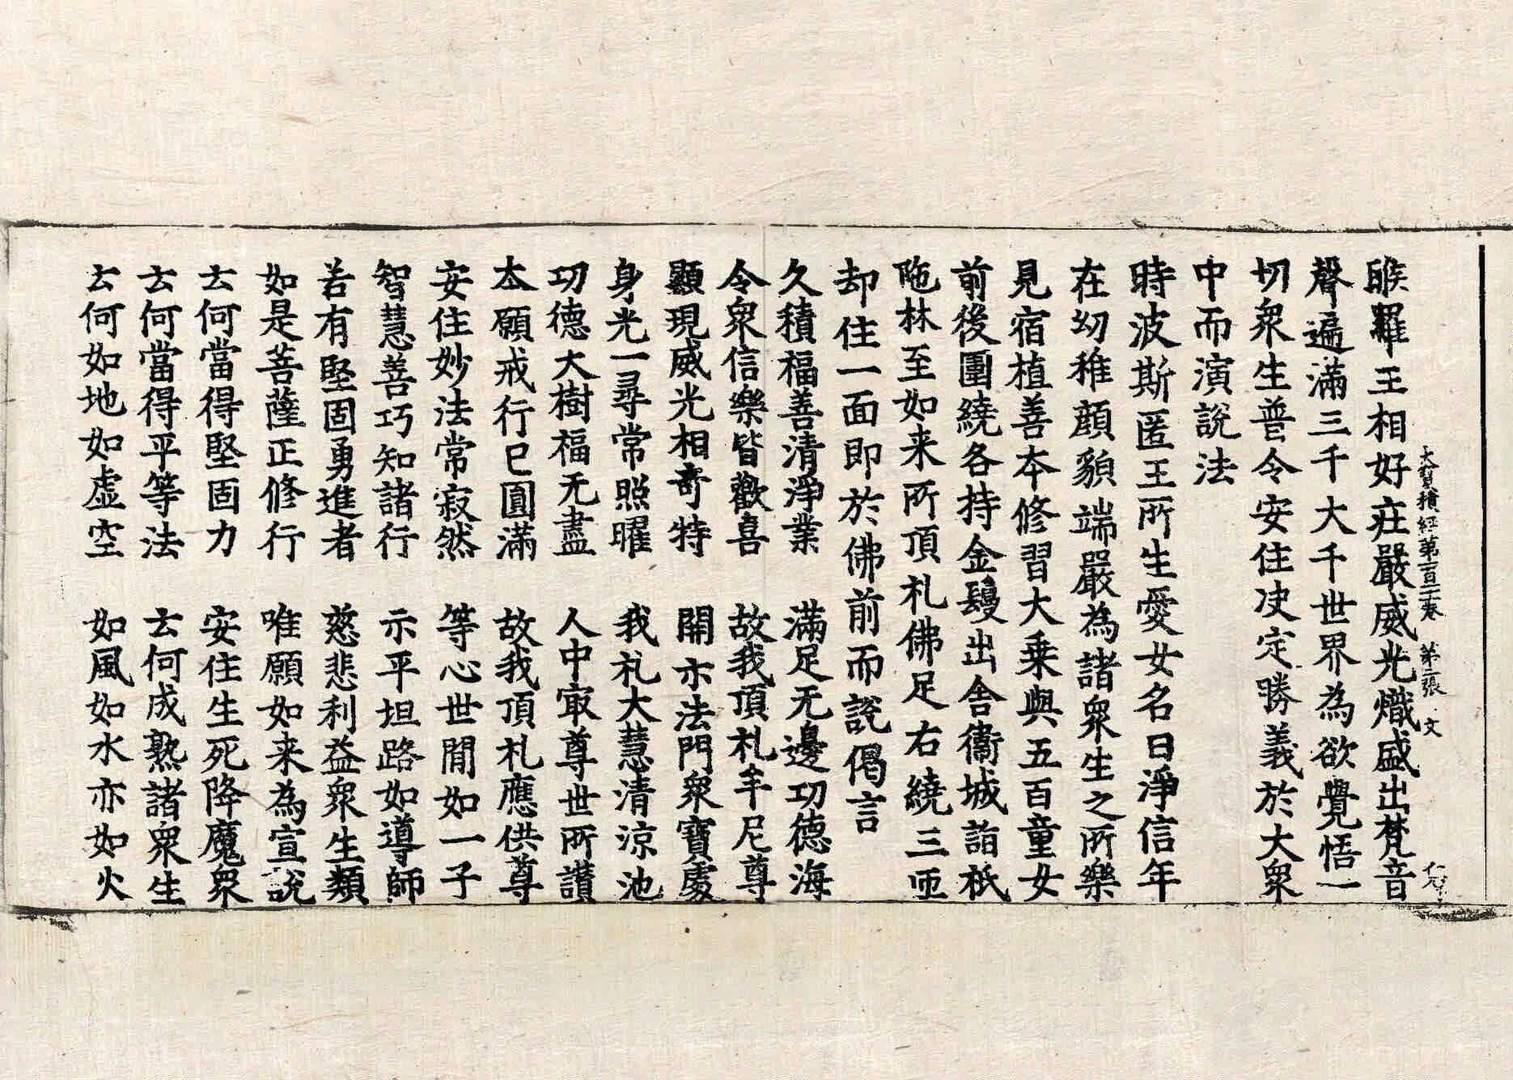 大寶積經第一百二十卷　第二張　文
睺羅王相好莊嚴威光熾盛出梵音
聲遍滿三千大千世界為欲覺悟一
切衆生普令安住决定勝義於大衆
中而演說法
時波斯匿王所生愛女名曰淨信年
在㓜稚顔貌端嚴為諸衆生之所樂
見宿植善夲修習大乗與五百童女
前後圍繞各持金鬘出舍衞城詣祇
陁林至如来所頂札佛足右繞三匝
却住一面即於佛前而說偈言
久積福善清淨業　滿足无邊功德海
令衆信樂皆歡喜　故我頂札牟尼尊
顯現威光相奇特　開示法門衆寶處
身光一尋常照曜　我札大慧清涼池
功德大樹福无盡　人中㝡尊世所讃
夲願戒行已圓滿　故我頂札應供尊
安住妙法常寂然　等心世間如一子
智慧善巧知諸行　示平坦路如導師
若有堅固勇進者　慈悲利益衆生類
如是菩薩正修行　唯願如来為宣說
云何當得堅固力　安住生死降魔衆
云何當得平等法　云何成熟諸衆生
云何如地如虛空　如風如水亦如火